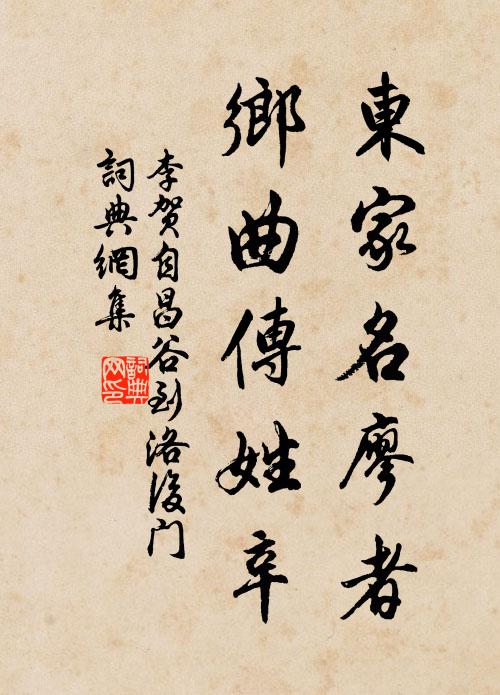 東家名廖者
鄉曲傳姓辛
李贺自昌谷到洛後门
詞典網集
詞典網印